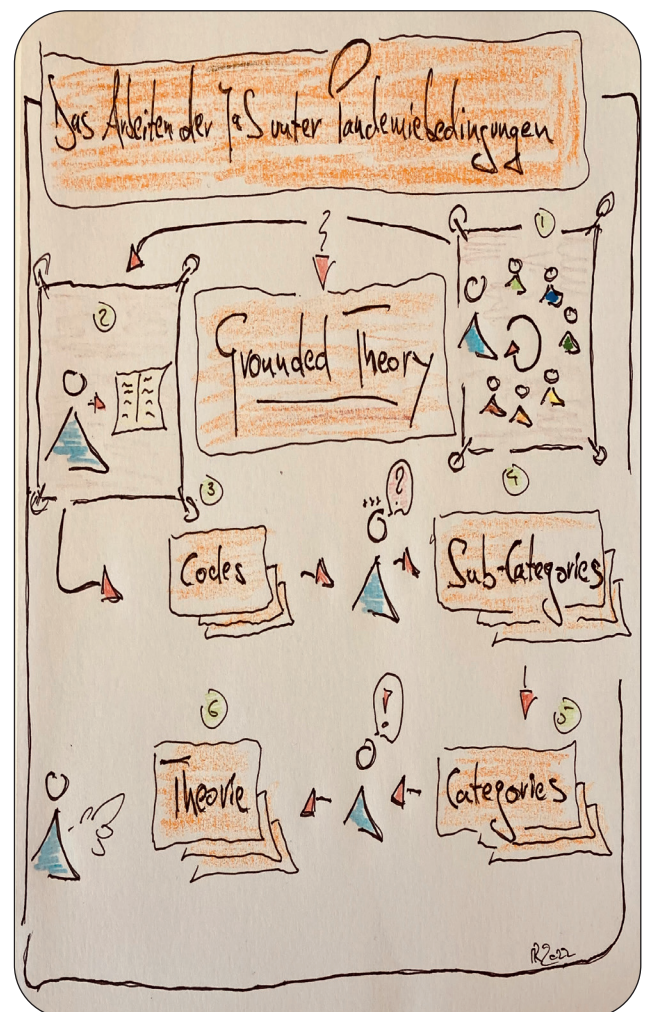 Das Arbeiten der JaS unter Pandemiebedingungen
1
2
Grounded Theory
3
?
4
Codes
Sub-Categories
6
!
5
Theorie
Categories
2022